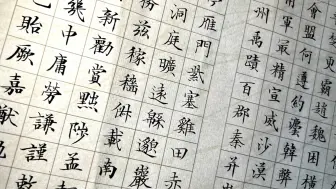 更霸趙魏困橫
會盟何遵約灋韓弊
軍最精宣威沙漠
州禹蹟百郡秦并
亭雁門紫塞雞田赤
洞庭曠遠緜邈巖
務茲稼穡俶載南
新勸賞黜陟孟
幾中庸勞謙謹
貽厥嘉猷